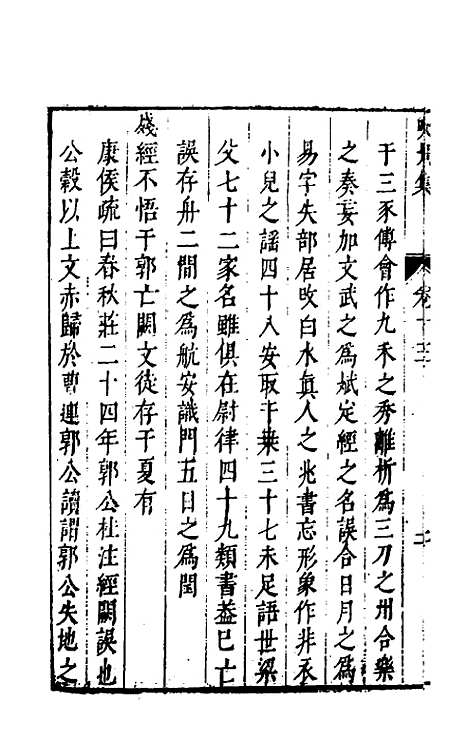 集 卷十三
于三豕傅會作九禾之秀離析為三刀之州合樂
之奏妄加文武之為斌定經之名誤合日月之為
易字失部居改白水真人之兆書忘形象作非衣
小兒之謡四十八安取于桒三十七未足語世梁
父七十二家名雖俱在尉律四十九類書葢已亡
誤存舟二間之為航安識門五日之為閏
殘經不悟于郭亡闕文徒存于夏有
康侯疏曰春秋莊二十四年郭公杜注經闕誤也
公穀以上文赤歸於曹連郭公讀謂郭公失地之